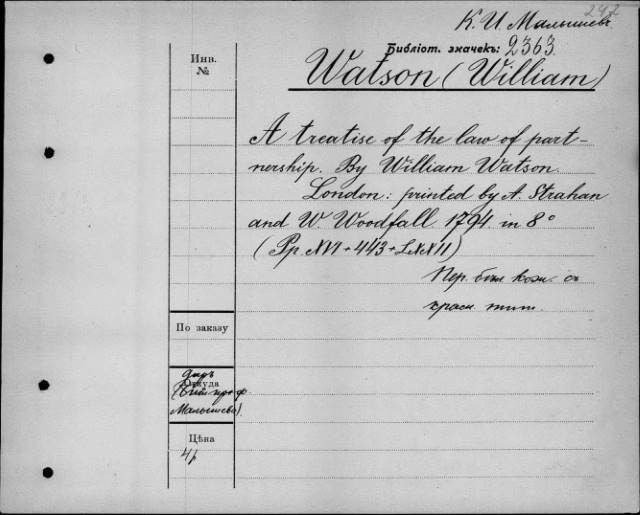 247
К. И. Малышева
Библіот. значекъ: 2363.
Инв.
№
Watson (William)
A treatise of the law of part-
nership. By William Watson.
London: printed by A. Strahan
and W. Woodfall. 1794. in 8°
(Pp. XVI + 443 + LXXII)
Пер. бѣл. кож. съ
красн. тит.
По заказу
даръ
Откуда
(Библ. проф.
Малышева).
Цѣна
4 р